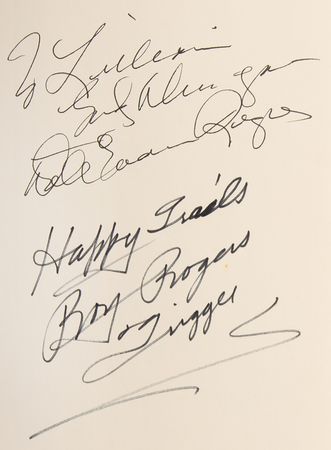 To Lillian
God's Always
Dale Evans Rogers
Happy Trails
Roy Rogers
& Trigger